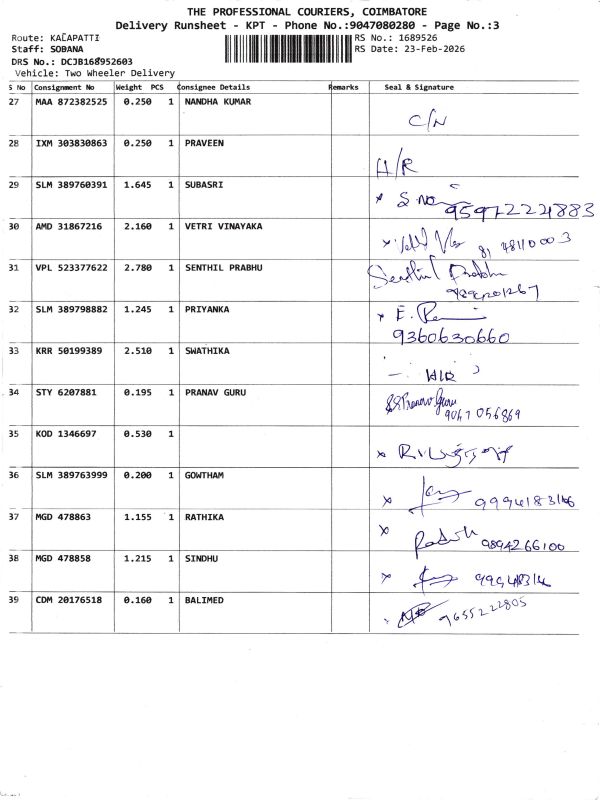 THE PROFESSIONAL COURIERS, COIMBATORE
Delivery Runsheet - KPT - Phone No.:9047080280 - Page No.:3
Route: KALAPATTI RS No.: 1689526
Staff: SOBANA RS Date: 23-Feb-2026
DRS No.: DCJB168952603
Vehicle: Two Wheeler Delivery
S No Consignment No Weight PCS Consignee Details Remarks Seal & Signature
27 MAA 872382525 0.250 1 NANDHA KUMAR
C/N
28 IXM 303830863 0.250 1 PRAVEEN
H/R
29 SLM 389760391 1.645 1 SUBASRI
30 AMD 31867216 2.160 1 VETRI VINAYAKA
31 VPL 523377622 2.780 1 SENTHIL PRABHU
Senthil Prabhu
32 SLM 389798882 1.245 1 PRIYANKA
9360630660
33 KRR 50199389 2.510 1 SWATHIKA
H/R
34 STY 6207881 0.195 1 PRANAV GURU
Pranav Guru
9047 056869
35 KOD 1346697 0.530 1
36 SLM 389763999 0.200 1 GOWTHAM
37 MGD 478863 1.155 1 RATHIKA
9894266100
38 MGD 478858 1.215 1 SINDHU
39 CDM 20176518 0.160 1 BALIMED
9655222805